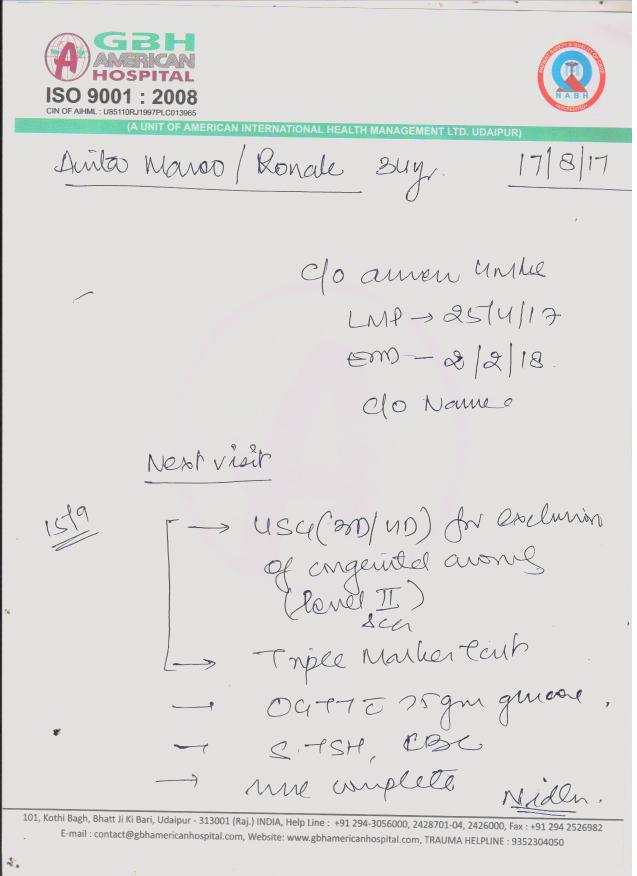 GBH
AMERICAN
HOSPITAL
ISO 9001 : 2008
CIN OF AIHML : U85110RJ1997PLC013965
PATIENT SAFETY & QUALITY OF CARE
NABH
(A UNIT OF AMERICAN INTERNATIONAL HEALTH MANAGEMENT LTD. UDAIPUR)
Anita / Ronak 34y. 17/8/17
c/o
LMP → 25/4/17
EDD - 2/2/18
c/o
Next visit
15/9
→ USG (3D/4D) for exclusion
of congenital
(level II)
→ Triple Marker
→ OGTT c 75gm glucose.
→ S.TSH, CBC
→ complete
101, Kothi Bagh, Bhatt Ji Ki Bari, Udaipur - 313001 (Raj.) INDIA, Help Line : +91 294-3056000, 2428701-04, 2426000, Fax : +91 294 2526982
E-mail : contact@gbhamericanhospital.com, Website: www.gbhamericanhospital.com, TRAUMA HELPLINE : 9352304050